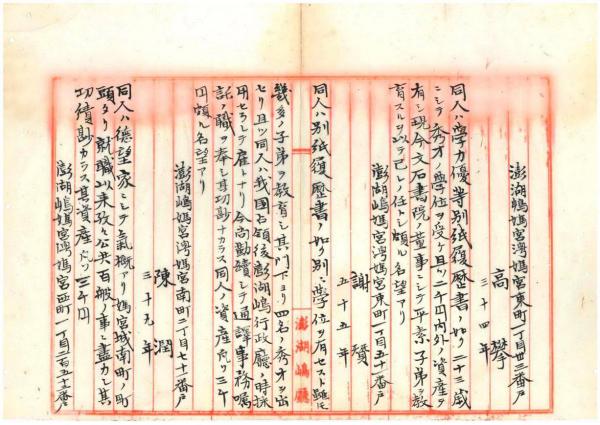 澎湖嶋媽宮湾媽宮東町一丁目廿三番戶
高攀
三十四年
同人ハ學力優等別紙履歷書ノ如ク二十三歲
ニシテ秀才ノ學位ヲ受ケ且ツ二千円内外ノ資產ヲ
有シ現今文石書院ノ董事ニシテ平素子弟ヲ教
育スルヲ以テ己レノ任トシ頗ル名望アリ
澎湖嶋媽宮湾媽宮東町一丁目七番戶
謝贊
五十五年
同人ハ別紙履歷書ノ如ク別ニ學位ヲ有セスト雖
幾多ノ子弟ヲ教育シ其門下ヨリ四名ノ秀才ヲ出
セリ且ツ同人ハ我国占領後澎湖嶋行政廳ノ時採
用セラレテ庄トナリ今尚勤績シテ通譯事務嘱
託ノ職ヲ奉シ其功尠ナカラス同人ノ資產凡ソ三千
円頗ル名望アリ
澎湖嶋媽宮湾媽宮南町二丁目七十番戶
陳潤
三十九年
同人ハ德望家ニシテ氣概アリ媽宮城南町ノ町
頭タリ就職以来孜々公共百般ノ事ニ盡力シ其
功績尠カラス其資產凡ソ三千円
澎湖嶋媽宮湾媽宮西町一丁目二百五十三番戶
澎湖嶋廳